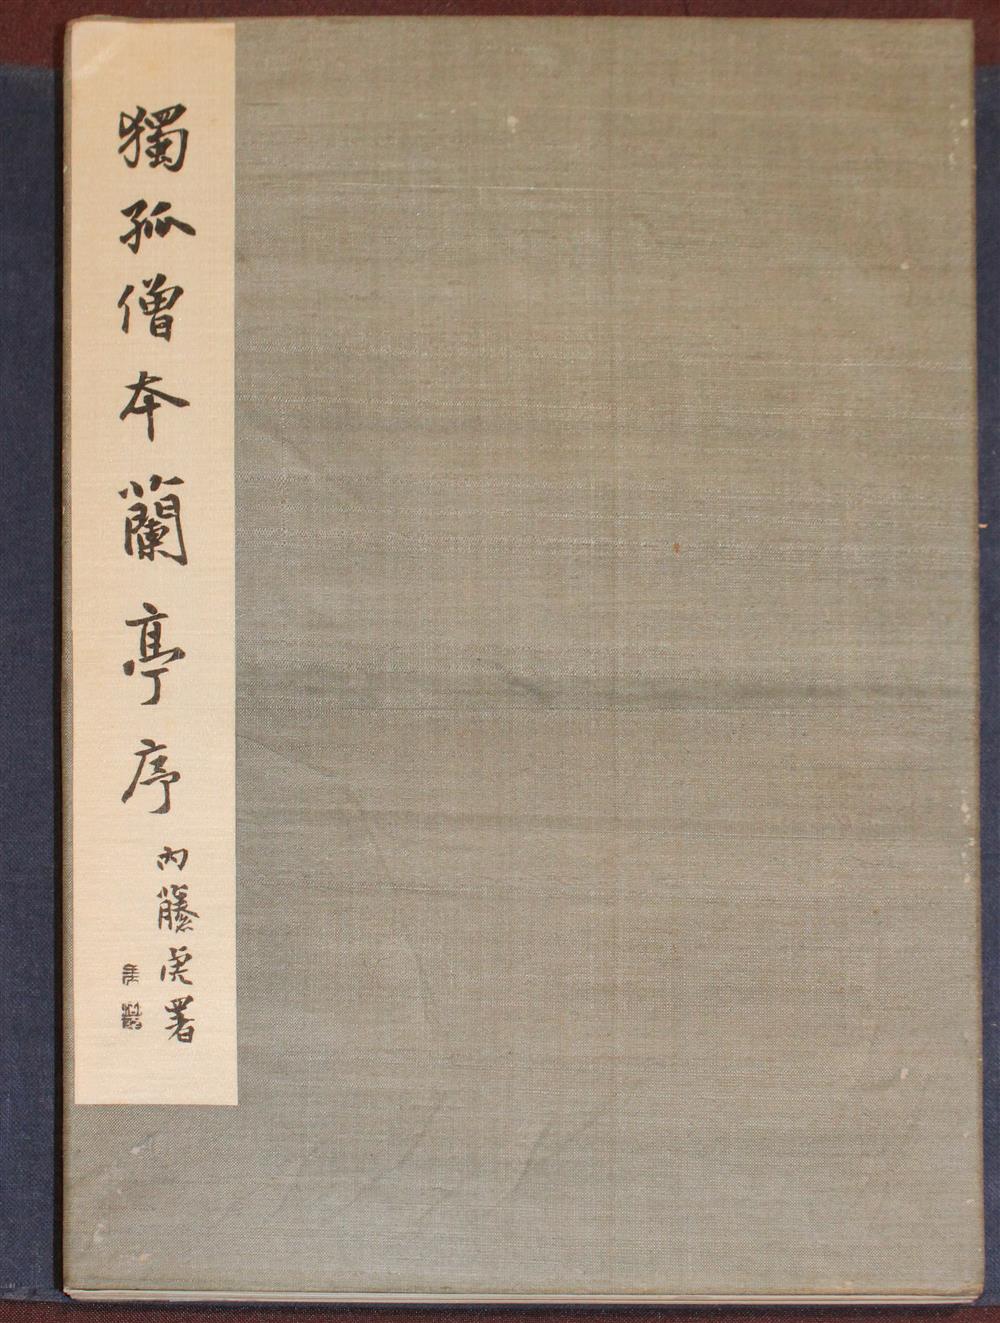 獨孤僧本蘭亭序
內藤虎署